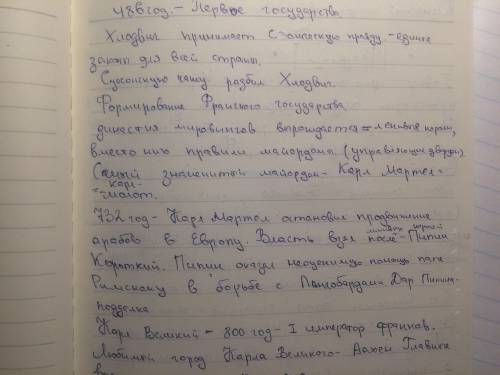 486 год. - Первое государство
Хлодвиг принимает Салическую правду - единые
законы для всей страны.
Суасонскую чашу разбил Хлодвиг.
Формирование Франского государства
династия мировингов врождается = ленивые короли,
вместо них правили майордомы (управляющие дворца)
Самый знаменитый майордом - Карл Мартел =
= Карл-молот.
732 год - Карл Мартел остановил продвижение
арабов в Европу. Власть взял после - Пипин
Короткий. Пипин оказал неоценимую помощь папе
Римскому в борьбе с Лангобардами Дар Пипина -
подделка
Карл Великий - 800 год - I император франков.
Любимый город Карла Великого - Аахен Главная